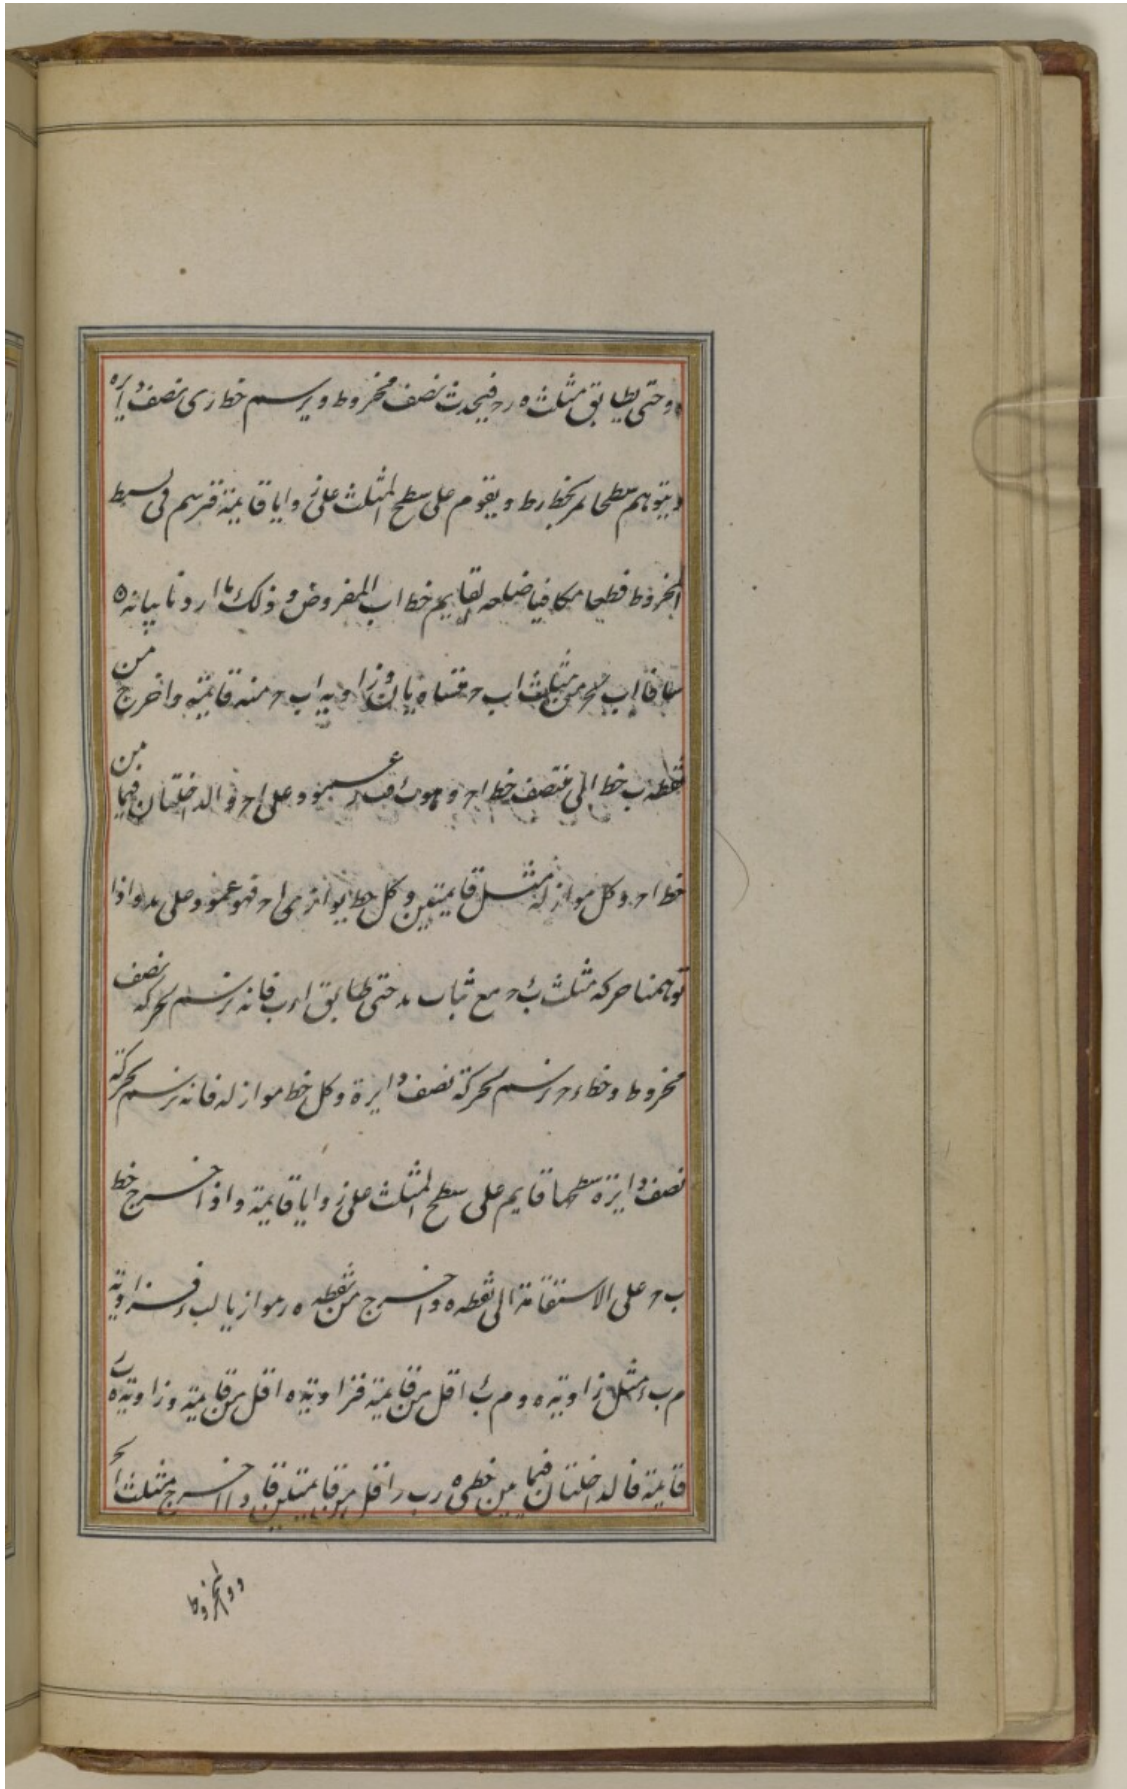 وحتى يطابق مثلث ه ر ح فيحدث نصف مخروط ويرسم خط ز ى نصف دايره
ويتوهم سطحا يمر بخط رط ويقوم على سطح المثلث على زوايا قايمة فترسم فى بسيط
المخروط قطعا مكافيا ضلعه لقايم خط اب المفروض وذلك ما اردنا بيانه ه
مثلث اب ح متساويان وزاويه اب ح منه قائمة واخرج من
نقطه ب خط الى منتصف خط اح وهو عمود على اح والداخلتان فيما بين
خط اح وكل مواز له مثل قايمتين وكل خط يوازى اح فهو عمود على بد واذا
توهمنا حركه مثلث ب ء ح مع ثبات بد حتى يطابق اءب فانه يرسم بحركه نصف
مخروط وخط ء ح يرسم بحركته نصف دايرة وكل خط مواز له فانه يرسم بحركته
نصف دايرة سطحها قايم على سطح المثلث على زوايا قايمة واذا اخرج خط
ب ح على الاستقامة الى نقطه ه واخرج من نقطه ه ر موازيا لب ء فزاوية
م ب ء مثل زاوية ه و م ب ء اقل من قايمة فزاوية ه اقل من قايمة وزاوية ه ر
قايمة فالداخلتان فيما بين خطى ه ر ب ر اقل من قايمتين فاذا اخرج مثلث
والمخروط